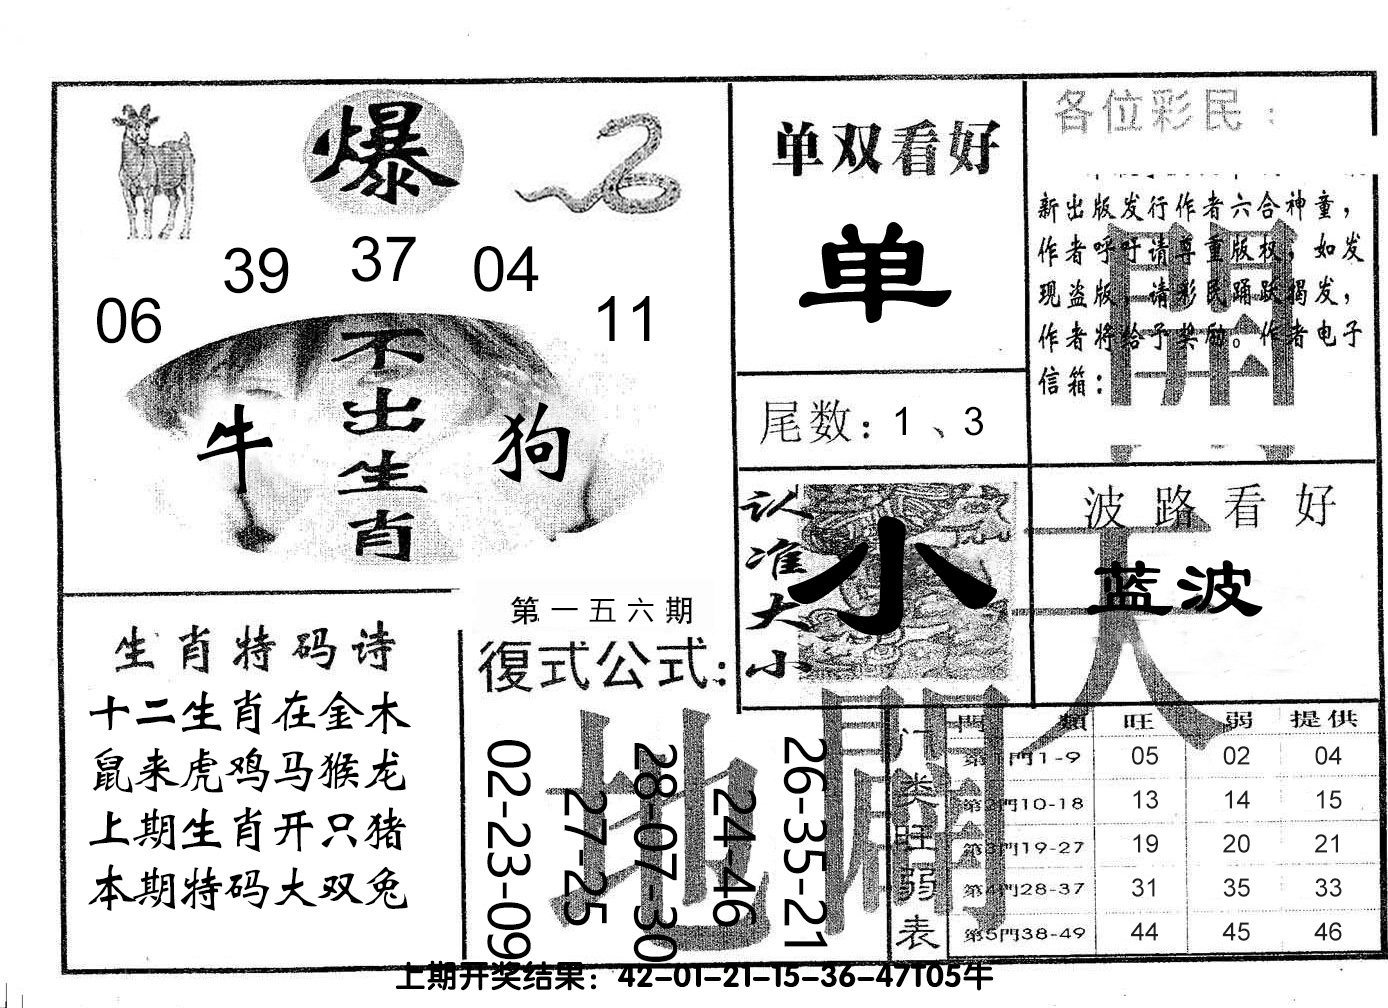 爆
39 37 04
06 11
不出生肖
牛 狗
单双看好
单
尾数：1、3
各位彩民：
新出版发行作者六合神童，
作者呼吁请尊重版权，如发
现盗版，请彩民踊跃揭发，
作者将给予奖励。作者电子
信箱：
開
认准大小
小
波路看好
蓝波
天
生肖特码诗
十二生肖在金木
鼠来虎鸡马猴龙
上期生肖开只猪
本期特码大双兔
第一五六期
復式公式：
02-23-09
27-25
28-07-30
24-46
26-35-21
地
門类旺弱表
門類 旺 弱 提供
第1門1-9 05 02 04
第2門10-18 13 14 15
第3門19-27 19 20 21
第4門28-37 31 35 33
第5門38-49 44 45 46
上期开奖结果：42-01-21-15-36-47T05牛